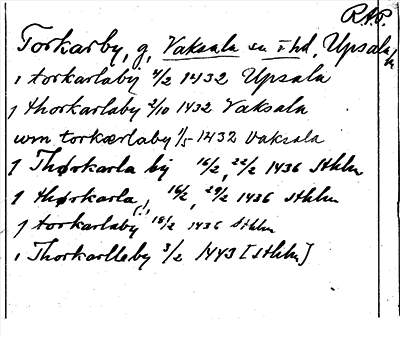 RAP.
Torkarby, g, Vaksala sn o hd, Upsala l.
i torkarlaby 4/2 1432 Upsala
J thorkarlaby 2/10 1432 Vaksala
wm torkærlaby 1/5 1432 Vaksala
J Thørkarla by 16/2, 22/2 1436 Sthlm
J thørkarla, 16/2, 29/2 1436 Sthlm
J torkarlaby (?) 18/2 1436 Sthlm
i Thorkarlleby 3/2 1443 [Sthlm]